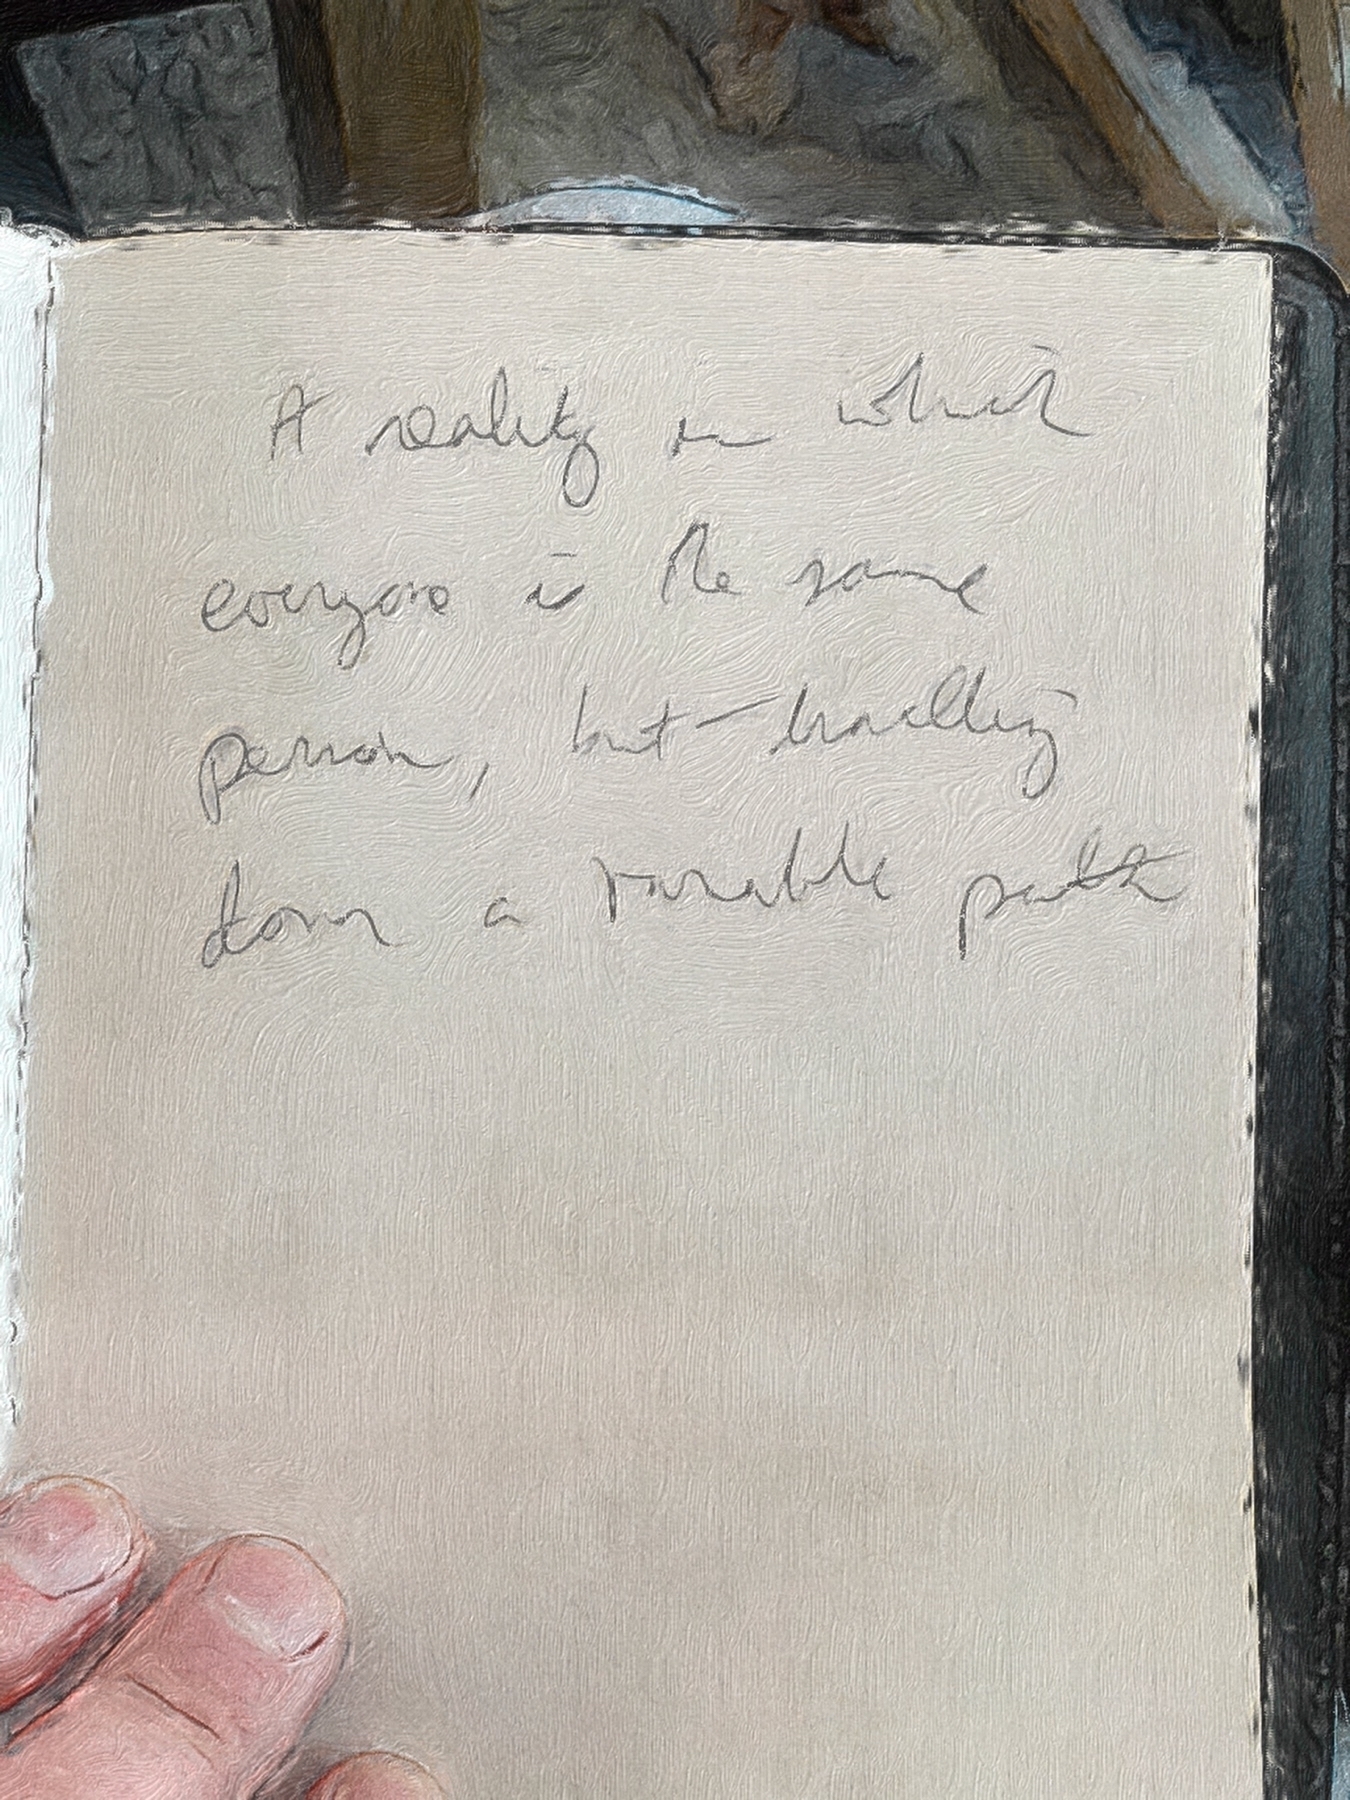 A reality in which
everyone is the same
person, but travelling
down a variable path